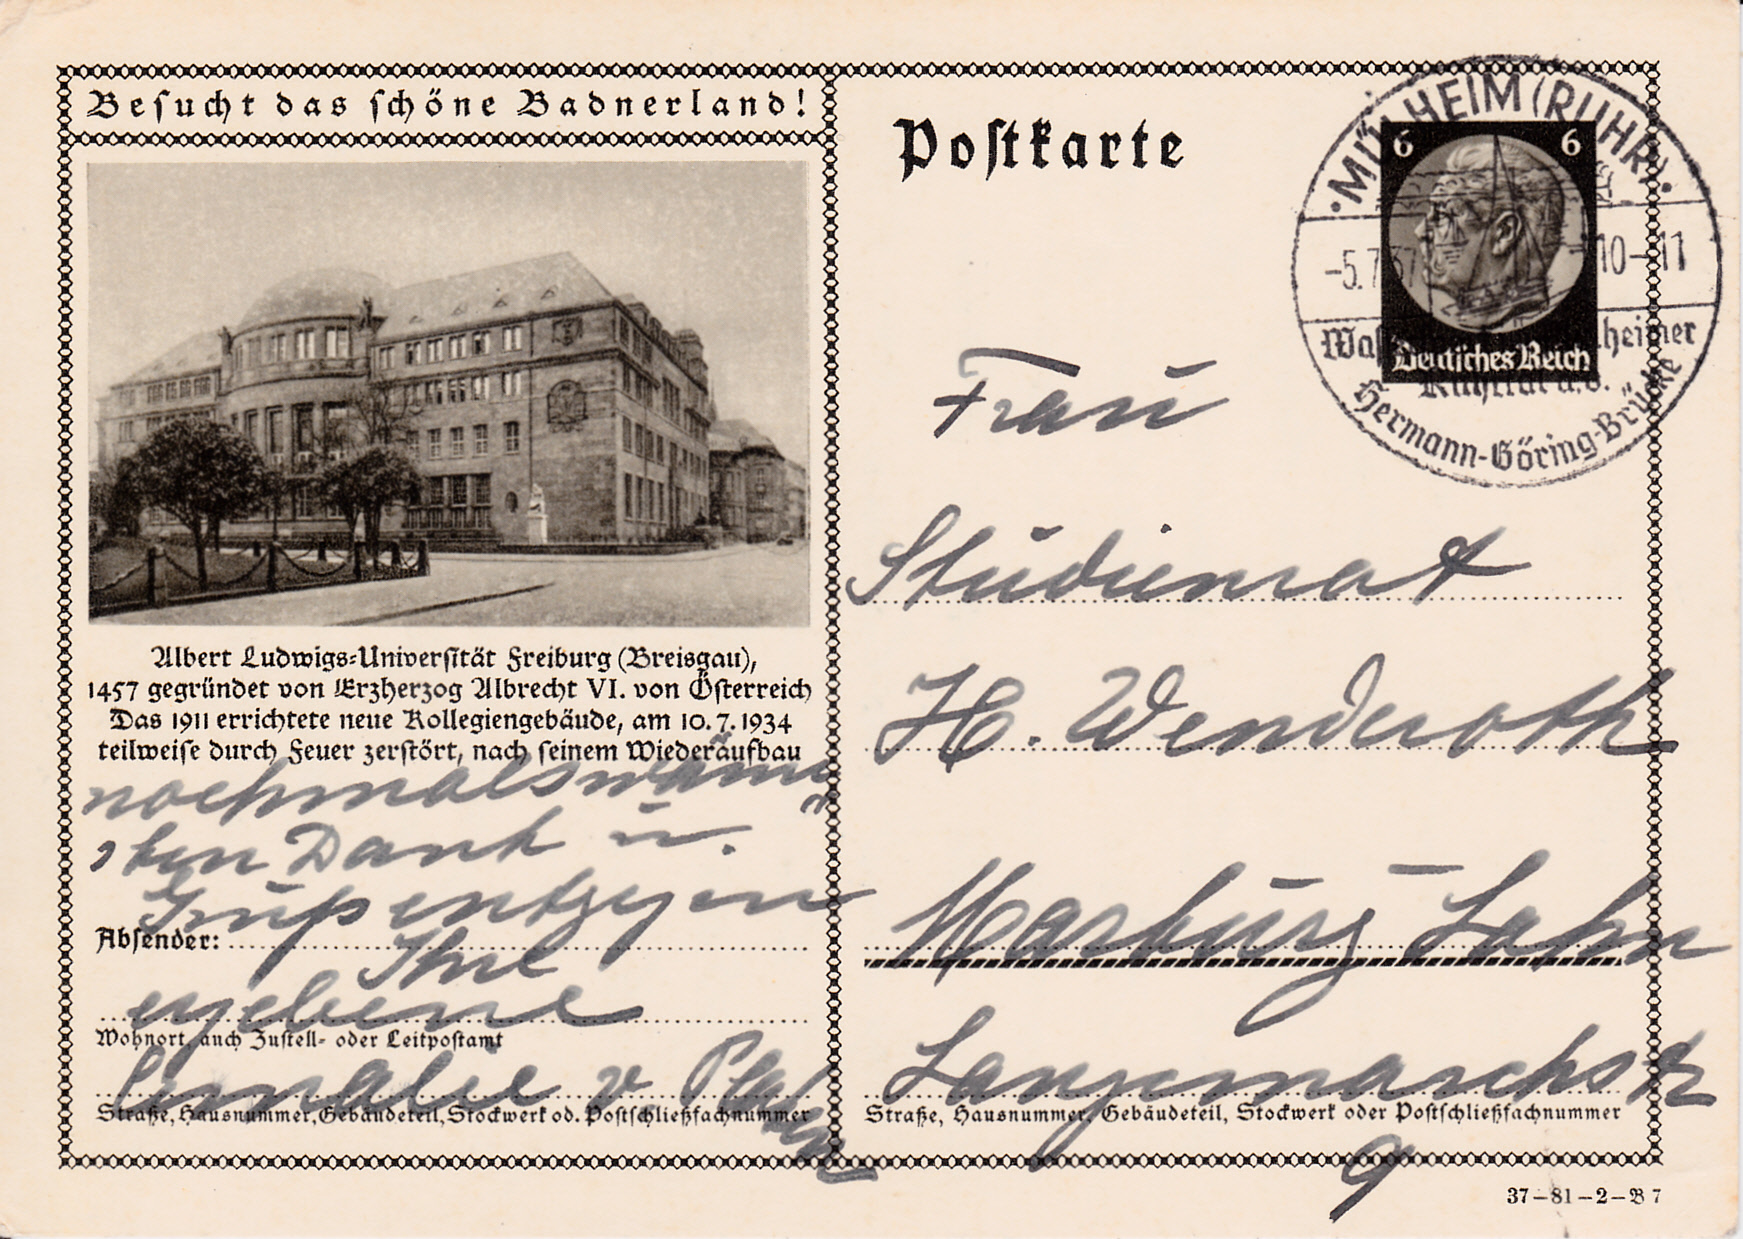 Besucht das schöne Badnerland!
Albert Ludwigs-Universität Freiburg (Breisgau),
1457 gegründet von Erzherzog Albrecht VI. von Österreich
Das 1911 errichtete neue Kollegiengebäude, am 10.7.1934
teilweise durch Feuer zerstört, nach seinem Wiederaufbau
nochmals wärm
sten Dank u.
Grüße entgegen
Absender:
Ihre
ergebene
Wohnort, auch Zustell- oder Leitpostamt
v. Platen
Straße, Hausnummer, Gebäudeteil, Stockwerk od. Postschließfachnummer
Postkarte
6 6
Deutsches Reich
MÜLHEIM (RUHR)
-5.7.37 10-11
heimer
Ruhrtal a.d.
Hermann-Göring-Brücke
Frau
Studienrat
H. Wenderoth
Marburg-Lahn
Langemarckstr
9
Straße, Hausnummer, Gebäudeteil, Stockwerk oder Postschließfachnummer
37-81-2-B 7